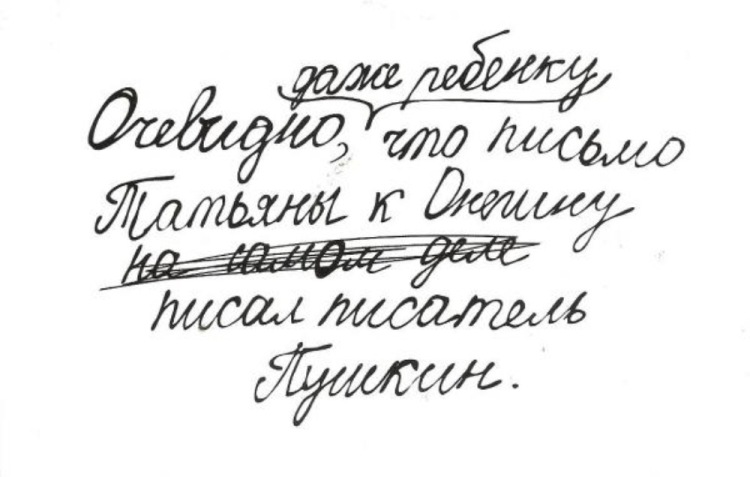 даже ребенку
Очевидно, что письмо
Татьяны к Онегину
на самом деле
писал писатель
Пушкин.